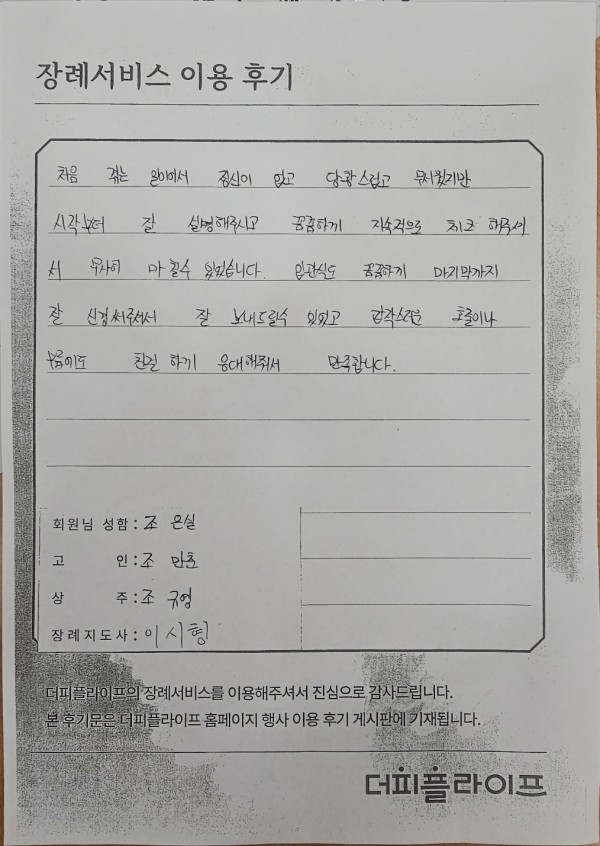 장례서비스 이용 후기
처음 겪는 일이어서 정신이 없고 당황스럽고 무서웠지만
시작부터 잘 설명해주시고 꼼꼼하게 지속적으로 체크 해주셔
서 무사히 마칠수 있었습니다. 입관식도 꼼꼼하게 마지막까지
잘 신경써주셔서 잘 보내드릴수 있었고 갑작스러운 호출이나
부름에도 친절 하게 응대해줘서 만족합니다.
회원님 성함 : 조 은실
고 인 : 조 만호
상 주 : 조 규영
장례지도사 : 이시형
더피플라이프의 장례서비스를 이용해주셔서 진심으로 감사드립니다.
본 후기문은 더피플라이프 홈페이지 행사 이용 후기 게시판에 기재됩니다.
더피플라이프